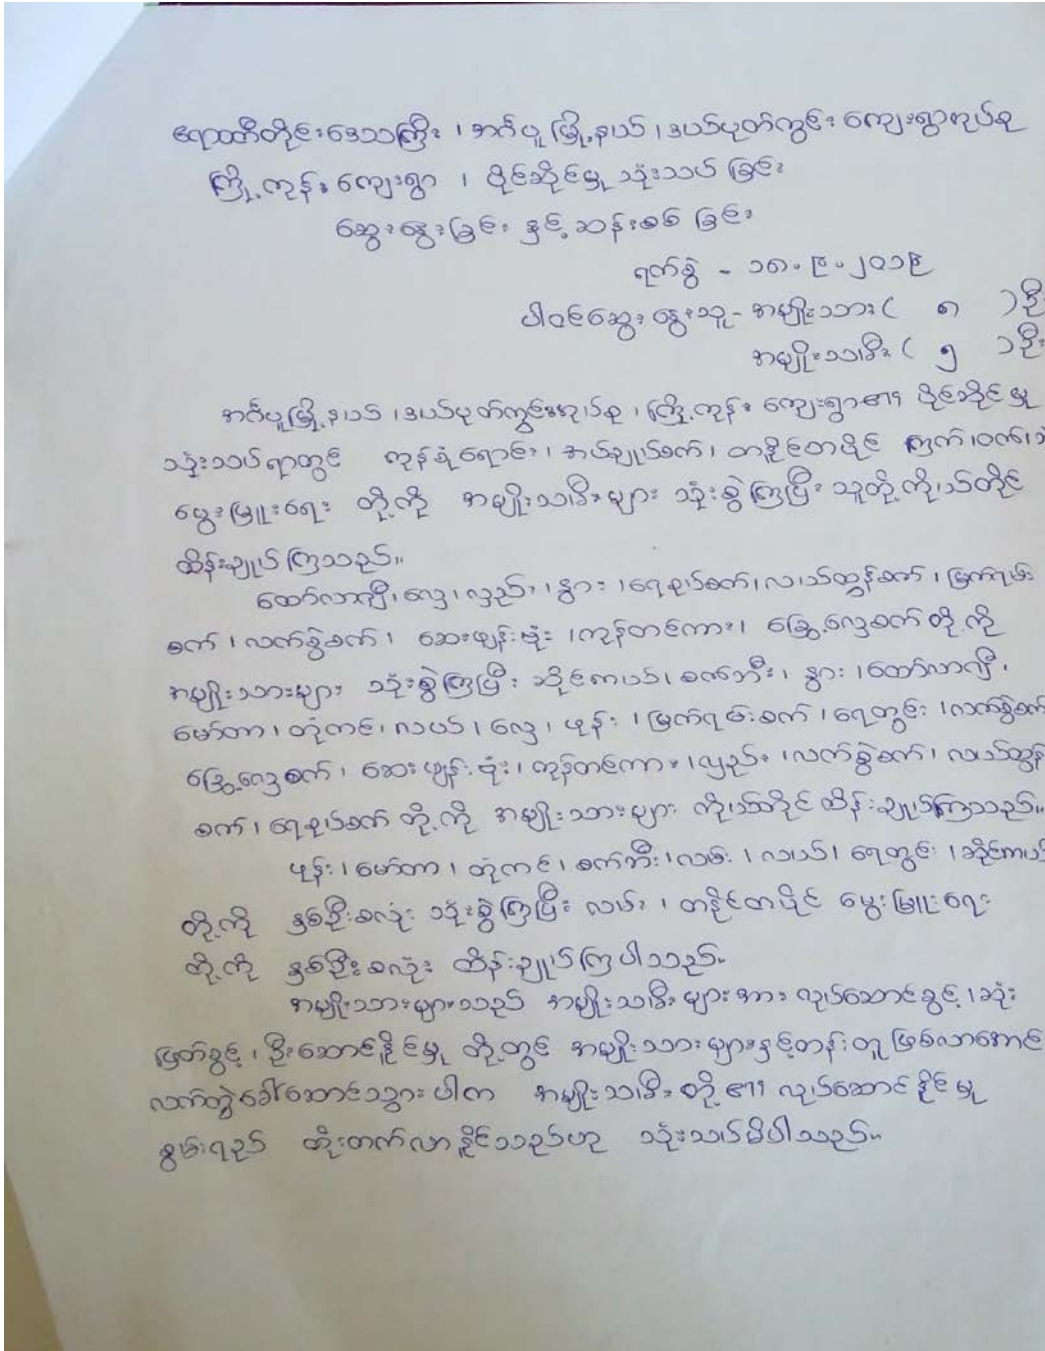 ဧရာဝတီတိုင်းဒေသကြီး ၊ အင်္ဂပူမြို့နယ် ၊ ဒယ်ပုတ်ကွင်း ကျေးရွာအုပ်စု
ကြို့ကုန်း ကျေးရွာ ၊ ပိုင်ဆိုင်မှု သုံးသပ် ခြင်း
ဆွေးနွေးခြင်း နှင့် ဆန်းစစ် ခြင်း
ရက်စွဲ - ၁၈.၉.၂၀၁၉
ပါဝင်ဆွေး နွေးသူ- အမျိုးသား ( ၈ ) ဦး
အမျိုးသမီး ( ၅ ) ဦး
အင်္ဂပူမြို့နယ် ၊ ဒယ်ပုတ်ကွင်းအုပ်စု ၊ ကြို့ကုန်း ကျေးရွာ၏ ပိုင်ဆိုင်မှု
သုံးသပ်ရာတွင် ကုန်စုံရောင်း ၊ အပ်ချုပ်စက် ၊ တနိုင်တပိုင် ကြက် ၊ ဝက် ၊
မွေးမြူရေး တို့ကို အမျိုးသမီးများ သုံးစွဲကြပြီး သူတို့ကိုယ်တိုင်
ထိန်းချုပ်ကြသည်။
ထော်လာဂျီ ၊ လှေ ၊ လှည်း ၊ နွား ၊ ရေစုပ်စက် ၊ လယ်ထွန်စက် ၊ မြက်ရမ်း
စက် ၊ လက်စွဲစက် ၊ ဆေးဖျန်းပုံး ၊ ကုန်တင်ကား ၊ ခြွေလှေ့စက် တို့ကို
အမျိုးသားများ သုံးစွဲကြပြီး ဆိုင်ကယ် ၊ စက်ဘီး ၊ နွား ၊ ထော်လာဂျီ ၊
မော်တာ ၊ တုံကင် ၊ လယ် ၊ လှေ ၊ ဖုန်း ၊ မြက်ရမ်းစက် ၊ ရေတွင်း ၊ လက်စွဲစက်
ခြွေလှေ့စက် ၊ ဆေးဖျန်းပုံး ၊ ကုန်တင်ကား ၊ လှည်း ၊ လက်စွဲစက် ၊ လယ်ထွန်
စက် ၊ ရေစုပ်စက် တို့ကို အမျိုးသားများ ကိုယ်တိုင် ထိန်းချုပ်ကြသည်။
ဖုန်း ၊ မော်တာ ၊ တုံကင် ၊ စက်ဘီး ၊ လမ်း ၊ လယ် ၊ ရေတွင်း ၊ ဆိုင်ကယ်
တို့ကို နှစ်ဦးစလုံး သုံးစွဲကြပြီး လမ်း ၊ တနိုင်တပိုင် မွေးမြူရေး
တို့ကို နှစ်ဦးစလုံး ထိန်းချုပ်ကြပါသည်။
အမျိုးသားများသည် အမျိုးသမီးများအား လုပ်ဆောင်ခွင့် ၊ ဆုံး
ဖြတ်ခွင့် ၊ ဦးဆောင်နိုင်မှု တို့တွင် အမျိုးသားများနှင့်တန်းတူ ဖြစ်လာအောင်
လက်တွဲခေါ်ဆောင်သွားပါက အမျိုးသမီးတို့၏ လုပ်ဆောင်နိုင်မှု
စွမ်းရည် တိုးတက်လာနိုင်သည်ဟု သုံးသပ်မိပါသည်။